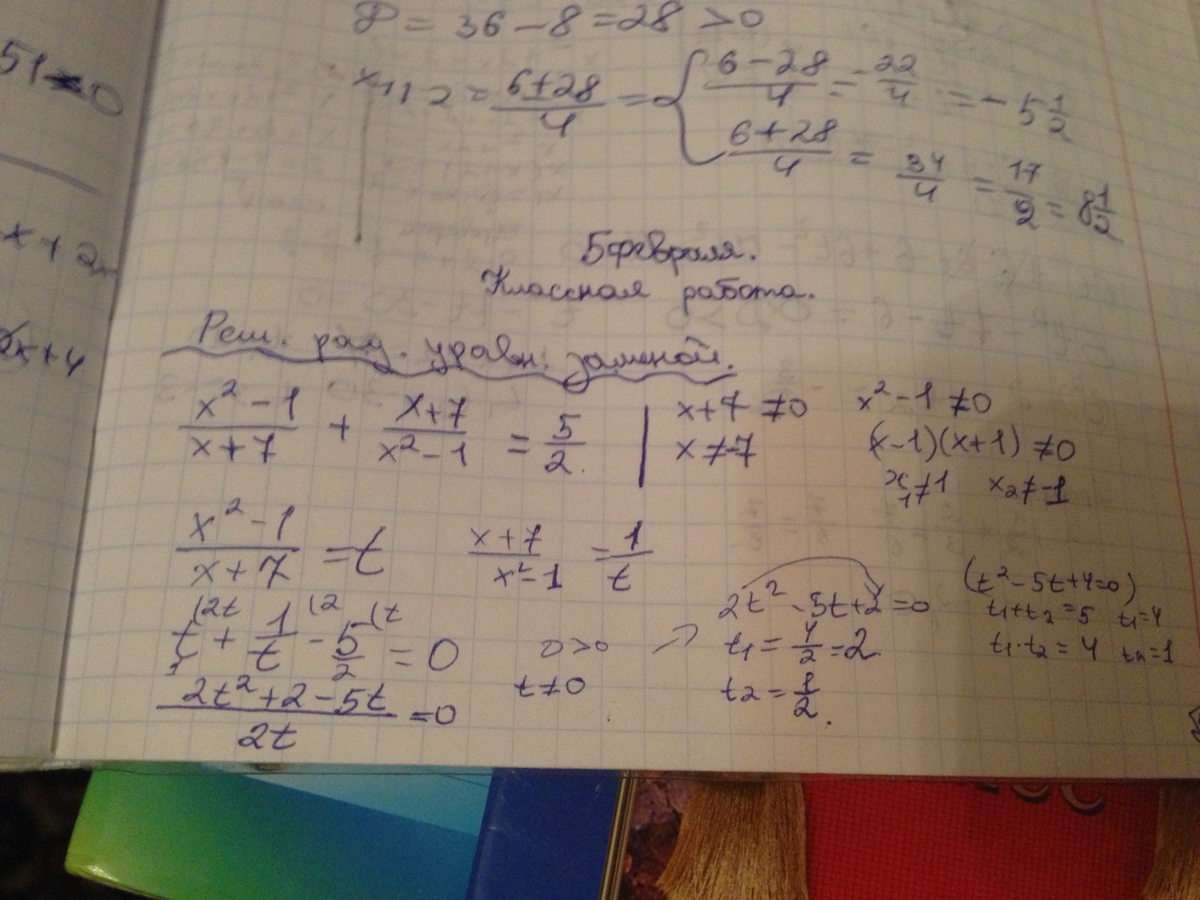 51 0
x + 2x
2x+4
D = 36 - 8 = 28 > 0
x₁,₂ = (6±28)/4 = { (6-28)/4 = -22/4 = -5 1/2
(6+28)/4 = 34/4 = 17/2 = 8 1/2
5 февраля.
Классная работа.
Реш. рац. уравн. заменой.
(x²-1)/(x+7) + (x+7)/(x²-1) = 5/2. | x+7 ≠0 x²-1 ≠0
x≠-7 (x-1)(x+1) ≠0
x₁≠1 x₂≠-1
(x²-1)/(x+7) = t (x+7)/(x²-1) = 1/t
t/1 (2t + 1/t (2 - 5/2 (t = 0 D>0 → 2t²-5t+2=0 (t²-5t+4=0)
t₁ = 4/2 = 2 t₁+t₂=5 t₁=4
(2t²+2-5t)/2t = 0 t≠0 t₂ = 1/2. t₁·t₂=4 t₂=1